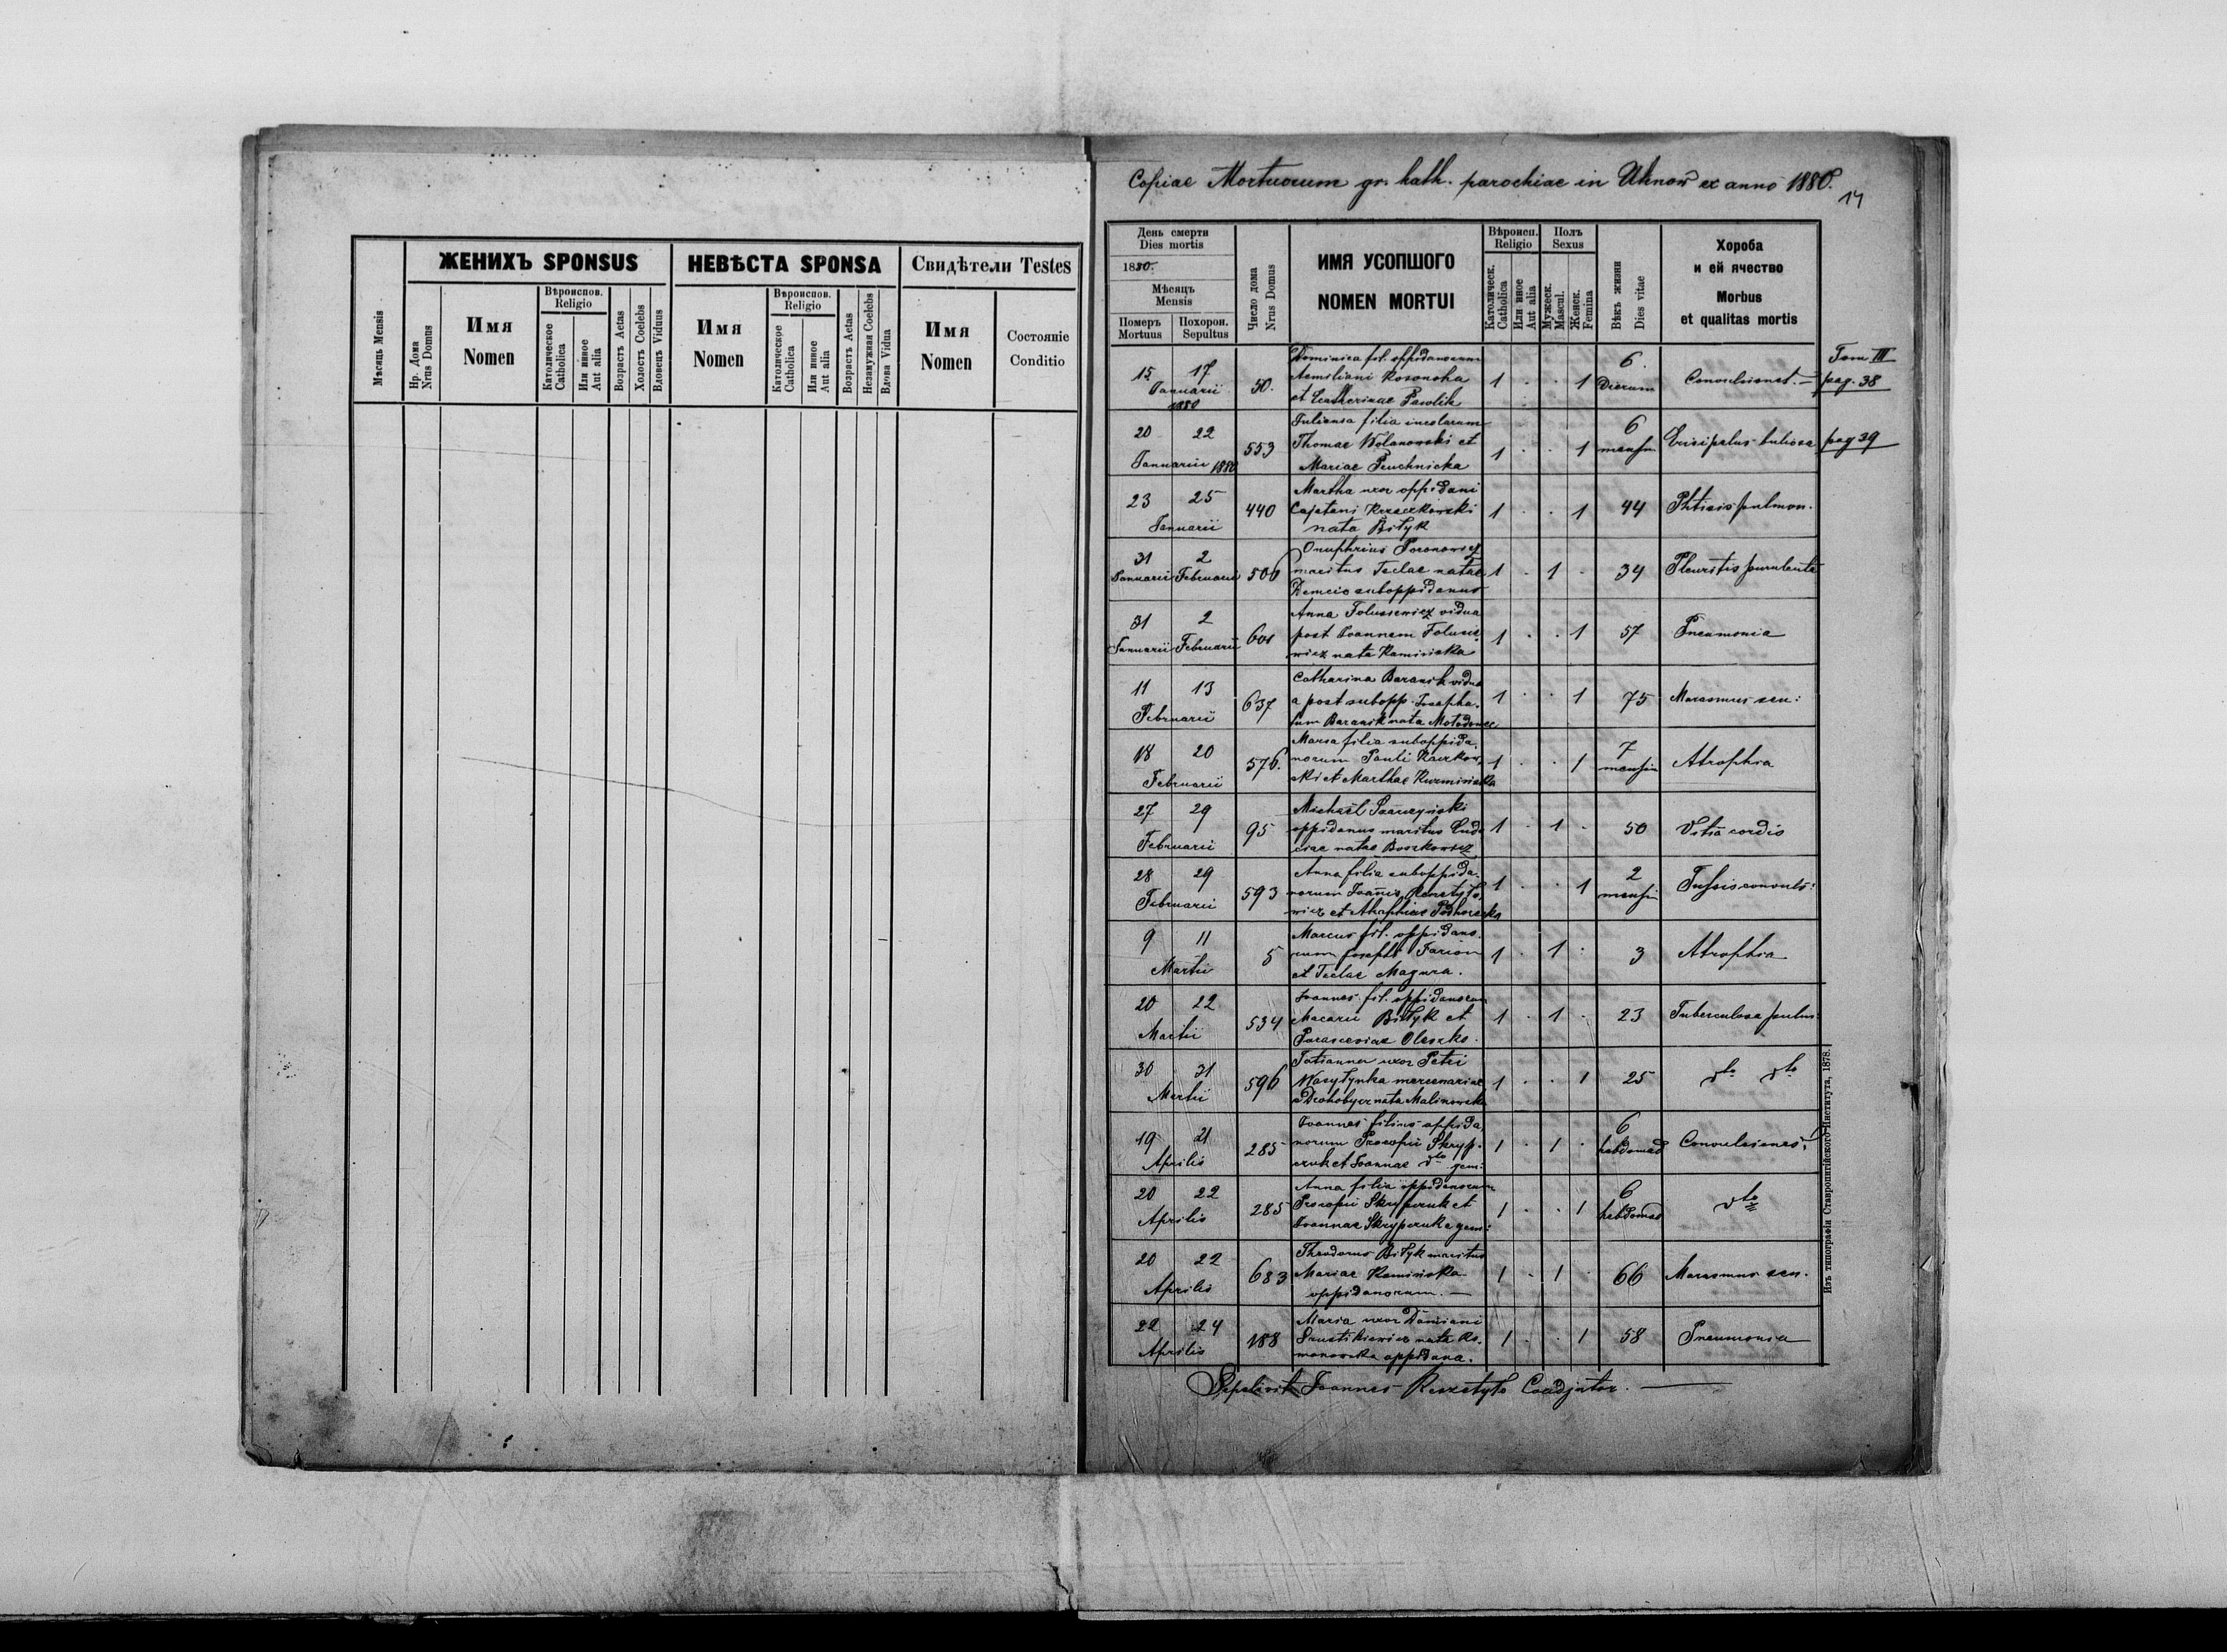 ЖЕНИХЪ SPONSUS
НЕВѢСТА SPONSA
Свидѣтели Testes
Мѣсяць Mensis
Нр. Дома
Nrus Domus
Имя
Nomen
Вѣроиспов.
Religio
Католическое
Catholica
Или инное
Aut alia
Возрастъ Aetas
Холостъ Coelebs
Вдовецъ Viduus
Имя
Nomen
Вѣроиспов.
Religio
Католическое
Catholica
Или инное
Aut alia
Возрастъ Aetas
Незамужная Coelebs
Вдова Vidua
Имя
Nomen
Состояніе
Conditio
Copiae Mortuorum gr. kath. parochiae in Uhnow ex anno 1880.
14
День смерти
Dies mortis
1880.
Мѣсяцъ
Mensis
Померъ
Mortuus
Похорон.
Sepultus
Число дома
Nrus Domus
ИМЯ УСОПШОГО
NOMEN MORTUI
Вѣроисп.
Religio
Католическ.
Catholica
Или иное
Aut alia
Полъ
Sexus
Мужеск.
Mascul.
Женск.
Femina
Вѣкъ жизни
Dies vitae
Хороба
и ей ячество
Morbus
et qualitas mortis
15 17
Januarii
1880
50.
Dominica fil. oppidanorum
Aemiliani
et Catherinae Pawlik
1 . . 1
6.
Dierum
Tom III
pag. 38
20 22
Januarii 1880
553
Juliana filia incolarum
Thomae Wolanowski et
Mariae
1 . . 1
6
mensin
Erisipelas bulosa
pag 39
23 25
Januarii
440
Martha uxor oppidani
Cajetani Kraczkowski
nata Biłyk
1 . . 1
44
Phtisis pulmon.
31 2
Januarii Februarii
506
Onuphrius
maritus Teclae natae
suboppidanus
1 . 1 .
34
Pleuritis purulenta
31 2
Januarii Februarii
601
Anna Folusiewicz vidua
post Joannem Folusie
wicz nata Kaminska
1 . . 1
57
Pneumonia
11 13
Februarii
637
Catharina Baranik vidu
a post subopp. Josepha.
tum Baranik nata
1 . . 1
75
Marasmus sen:
18 20
Februarii
576.
Maria filia suboppida.
norum Pauli Kaczkow
ski et Marthae
1 . . 1
7
mensin
Atrophia
27 29
Februarii
95
Michaël
oppidanus maritus Eudo
ciae natae Boszkowicz
1 . 1 .
50
Vitia cordis
28 29
Februarii
593
Anna filia suboppida.
norum Joannis Reszetyło
wicz et Podhorecka
1 . . 1
2
mensin
Tussis convuls:
9 11
Martii
5
Marcus fil. oppidano
rum Josephi Farion
et Teclae Magura.
1 . 1 .
3
Atrophia
20 22
Martii
534
Joannes fil. oppidanorum
Macarii Biłyk et
Parasceviae Oleszko.
1 . 1 .
23
Tuberculosa pulm:
30 31
Martii
596
Tatianna uxor Petri
Wasyłynka mercenariae
e Drohobycz nata Malinowska
1 . . 1
25
dto dto
19 21
Aprilis
285
Joannes filius oppida
norum Procopii Skryp.
czuk et Joannae dto gem:
1 . 1 .
6
hebdomad
Convulsiones.
20 22
Aprilis
285
Anna filia oppidanorum
Procopii Skrypczuk et
Joannae Skrypczuk e gem:
1 . . 1
6
hebdomad
dto
20 22
Aprilis
683
Theodorus Biłyk maritus
Mariae Kaminska
oppidanorum. —
1 . 1 .
66
Marasmus sen.
22 24
Aprilis
188
Maria uxor Damiani
nata Ro.
manowska oppidana.
1 . . 1
58
Pneumonia
Sepelivit Joannes Reszetyło Coadjutor. —
Изъ типографіи Ставропигійского Института, 1878.